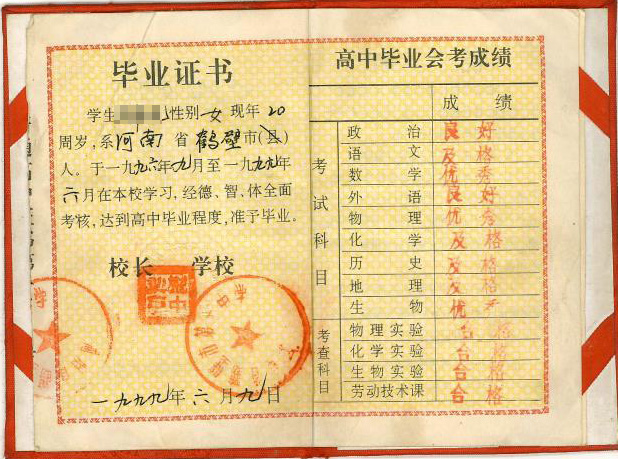 毕业证书
学生 性别 女 现年 20
周岁,系河南省鹤壁市(县)
人。于一九九六年九月至一九九九年
六月在本校学习,经德、智、体全面
考核,达到高中毕业程度,准予毕业。
校长 学校
一九九九年六月九日
高中毕业会考成绩
成绩
考试科目
政治 良好
语文 及格
数学 优秀
外语 良好
物理 优秀
化学 及格
历史 及格
地理 及格
生物 优
考查科目
物理实验 合格
化学实验 合格
生物实验 合格
劳动技术课 合格